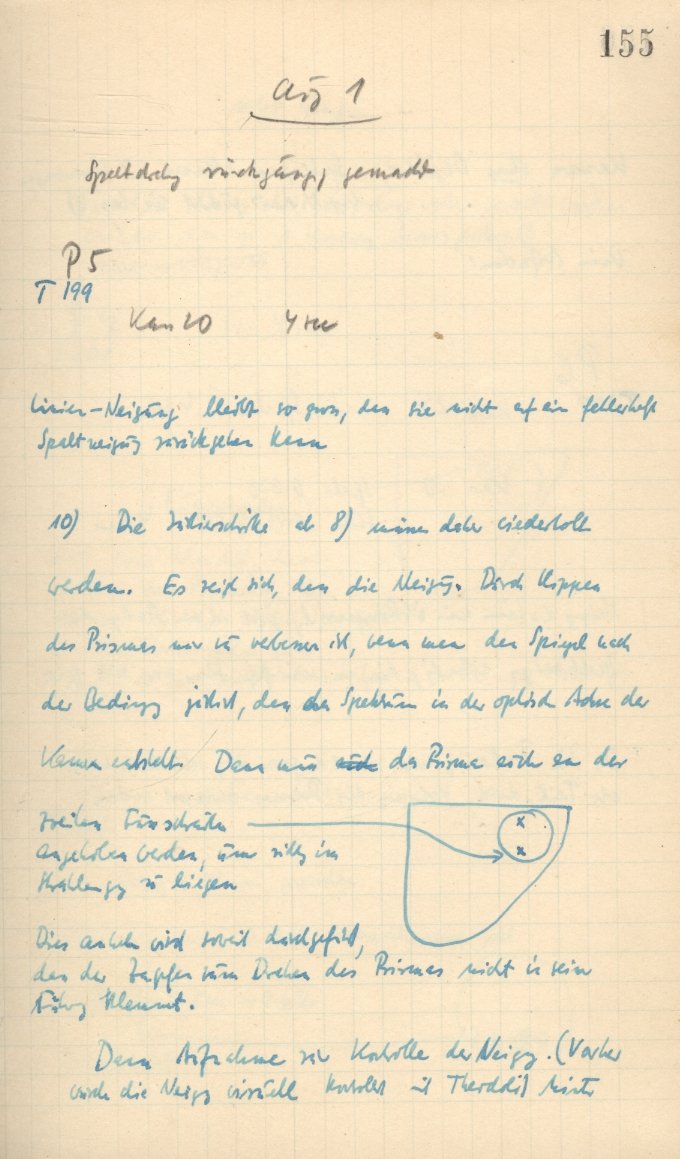 155
Aug 1
Spaltdrehg rückgängig gemacht
P5
T 199
Kam 20 4 sec
Linien-Neigung bleibt so gross, dass sie nicht auf ein fehlerhaft
Spaltneigung zurückgehen kann
10) Die Justierschritte ab 8) müssen daher wiederholt
werden. Es zeigt sich, dass die Neigung durch Kippen
des Prismas nur zu verbessern ist, wenn man den Spiegel nach
der Bedingg justiert, dass das Spektrum in der optisch Achse der
Kamera entsteht. Dann muss auch das Prisma auch an der
zweiten Fussschraube
angehoben werden, um richtig im
Strahlengg zu liegen
Dies anheben wird soweit durchgeführt,
dass der Zapfen zum Drehen des Prismas nicht in sein
Führg klemmt.
Dann Aufnahme zur Kontrolle der Neigg. (Vorher
wurde die Neigg visuell kontrolliert mit Theodolit hinter